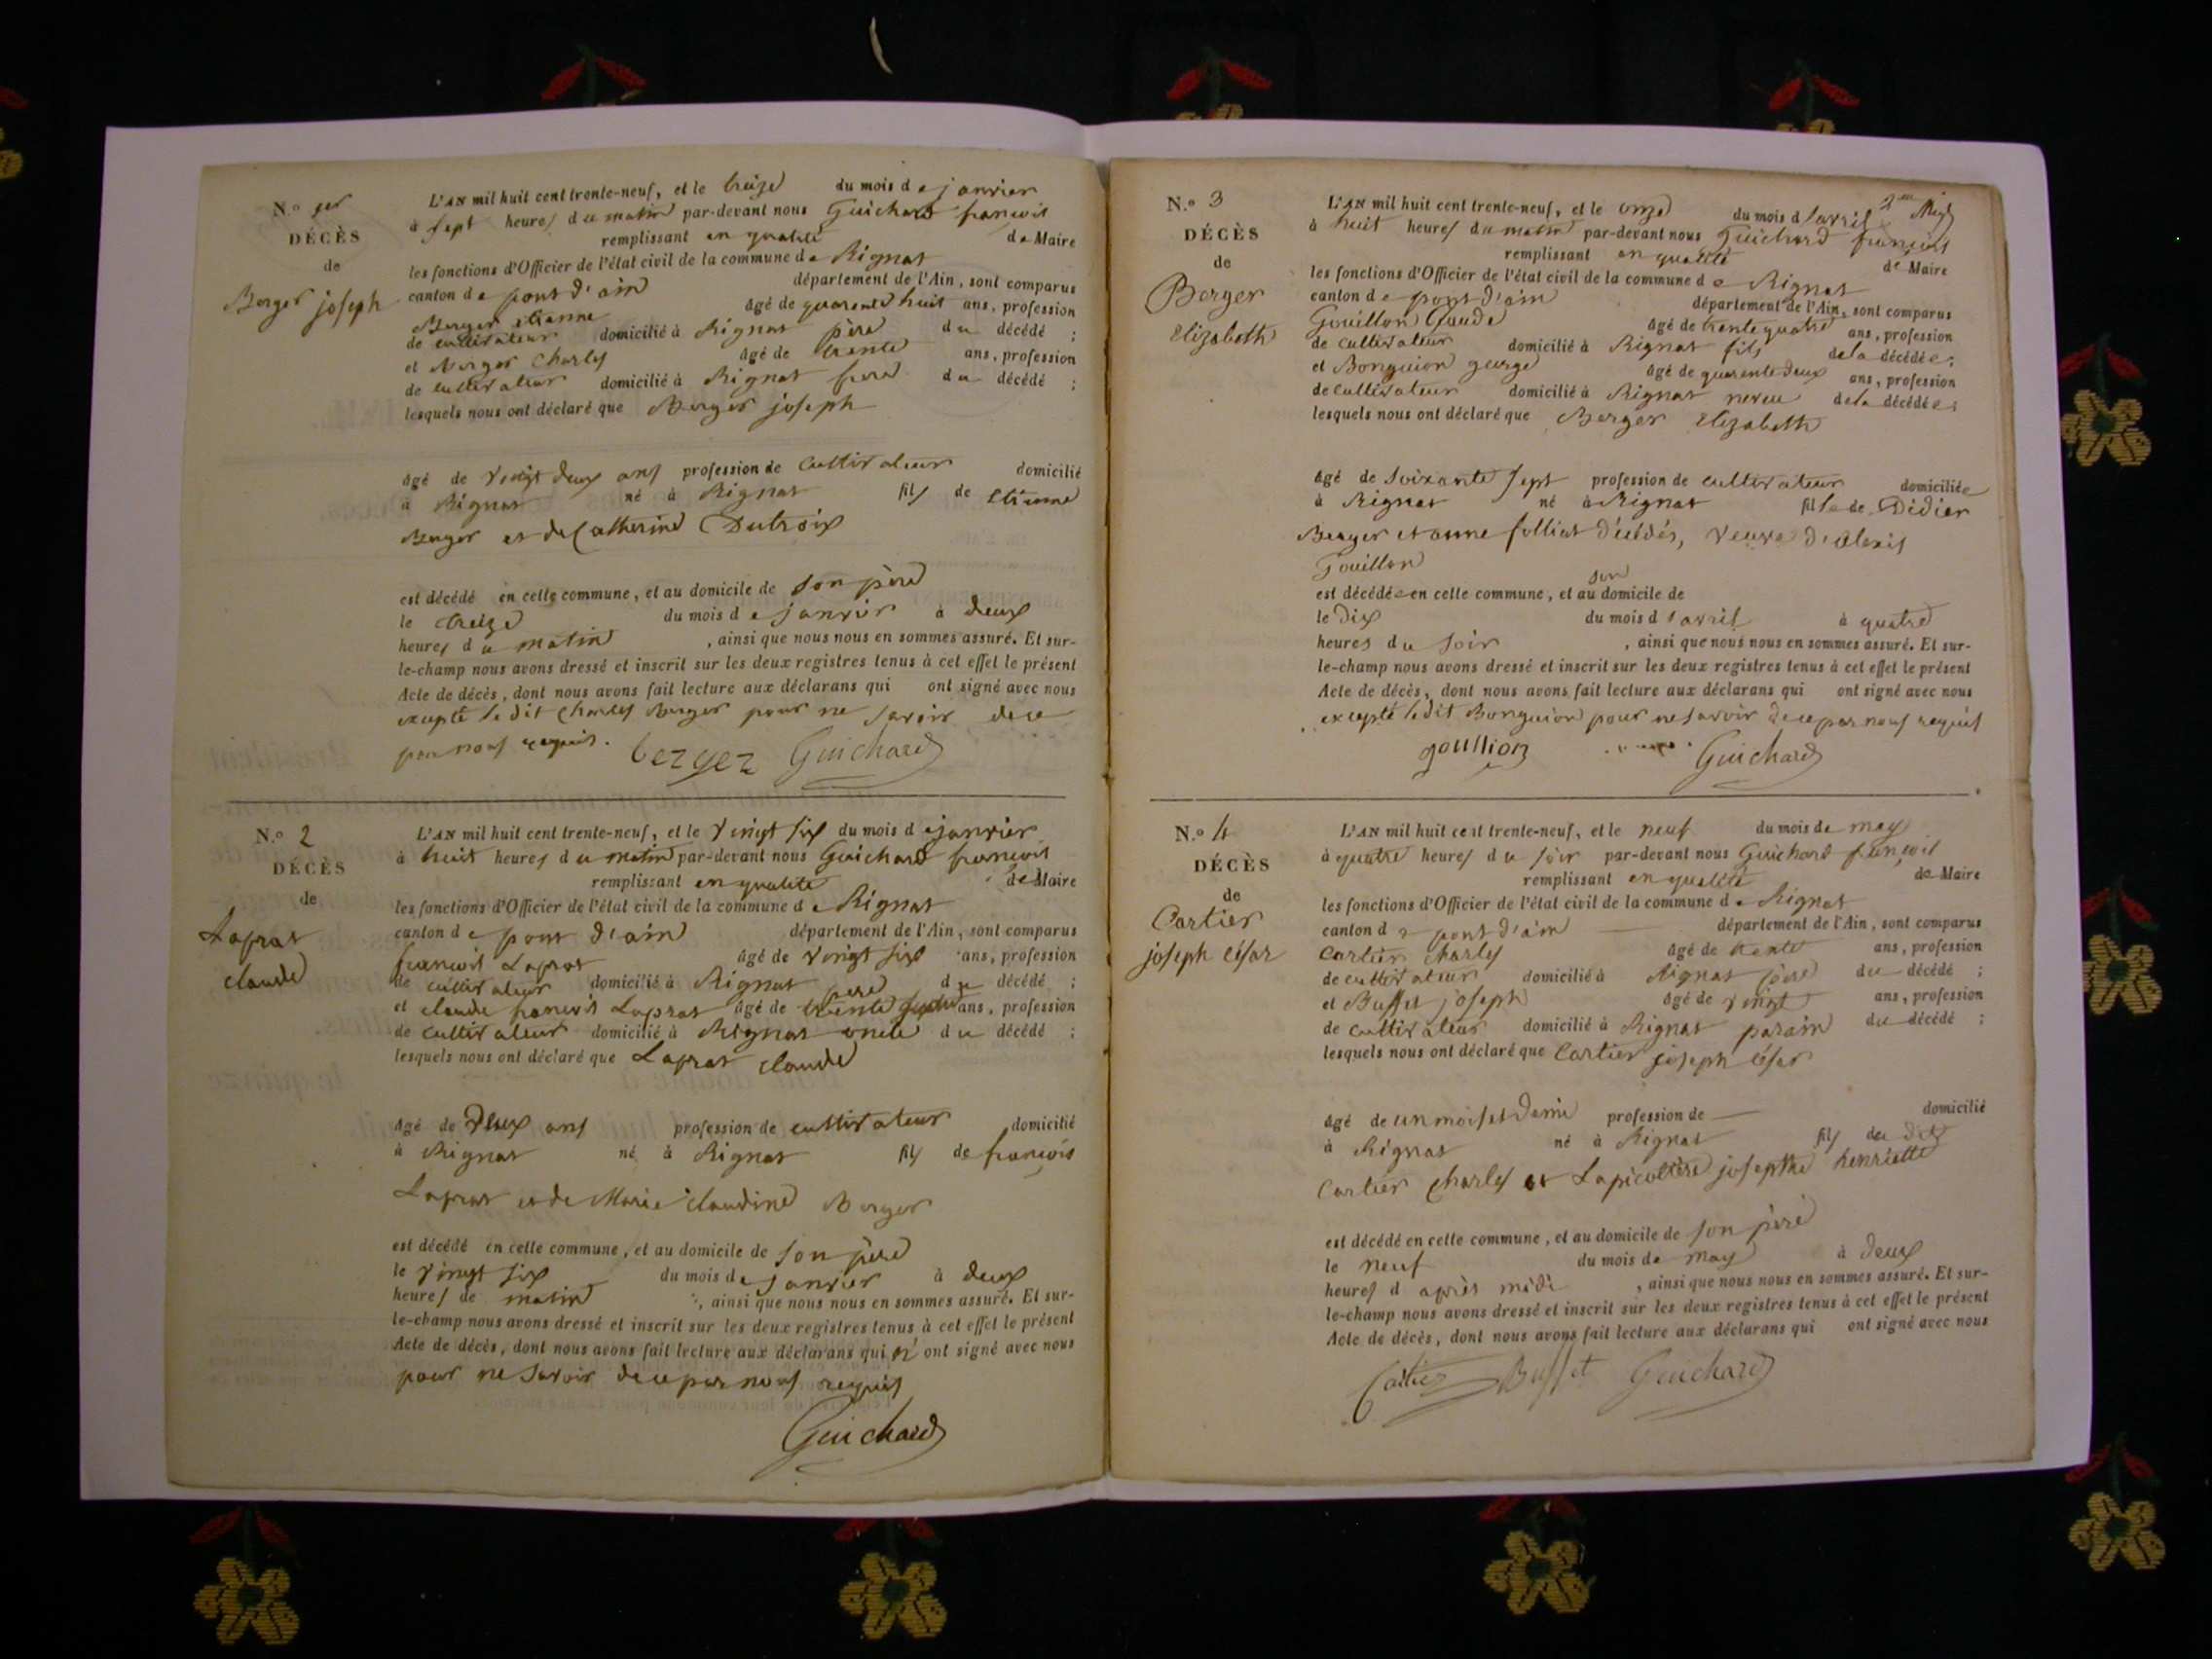 N.o 1er
DÉCÈS
de
Berger joseph
L'AN mil huit cent trente-neuf, et le treize du mois de janvier
à sept heures du matin par-devant nous Guichard françois
remplissant en qualité de Maire
les fonctions d'Officier de l'état civil de la commune de Rignat
canton de pont d'ain département de l'Ain, sont comparus
Berger etienne âgé de quarente huit ans, profession
de cultivateur domicilié à Rignat père du décédé ;
et Berger Charles âgé de trente ans, profession
de cultivateur domicilié à Rignat frere du décédé ;
lesquels nous ont déclaré que Berger joseph
âgé de vingt deux ans profession de cultivateur domicilié
à Rignat né à Rignat fils de Etienne
Berger et de Catherine Dutroix
est décédé en cette commune, et au domicile de son père
le treize du mois de janvier à deux
heures du matin , ainsi que nous nous en sommes assuré. Et sur-
le-champ nous avons dressé et inscrit sur les deux registres tenus à cet effet le présent
Acte de décès, dont nous avons fait lecture aux déclarans qui ont signé avec nous
excepté le dit Charles Berger pour ne savoir de ce
par nous requis. berger Guichard
N.o 2
DÉCÈS
de
Laprat
claude
L'AN mil huit cent trente-neuf, et le vingt six du mois de janvier
à huit heures du matin par-devant nous Guichard françois
remplissant en qualité de Maire
les fonctions d'Officier de l'état civil de la commune de Rignat
canton de pont d'ain département de l'Ain, sont comparus
francois Laprat âgé de vingt six ans, profession
de cultivateur domicilié à Rignat pere du décédé ;
et claude francois Laprat âgé de trente ans, profession
de cultivateur domicilié à Rignat oncle du décédé ;
lesquels nous ont déclaré que Laprat claude
âgé de Deux ans profession de cultivateur domicilié
à Rignat né à Rignat fils de françois
Laprat et de Marie claudine Berger
est décédé en cette commune, et au domicile de son père
le vingt six du mois de janvier à deux
heures de matin , ainsi que nous nous en sommes assuré. Et sur-
le-champ nous avons dressé et inscrit sur les deux registres tenus à cet effet le présent
Acte de décès, dont nous avons fait lecture aux déclarans qui n'ont signé avec nous
pour ne savoir de ce par nous requis
Guichard
2me
N.o 3
DÉCÈS
de
Berger
Elizabeth
L'AN mil huit cent trente-neuf, et le onze du mois d'avril
à huit heures du matin par-devant nous Guichard françois
remplissant en qualité de Maire
les fonctions d'Officier de l'état civil de la commune de Rignat
canton de pont d'ain département de l'Ain, sont comparus
Gouillon Claude âgé de trente quatre ans, profession
de cultivateur domicilié à Rignat fils de la décédée ;
et Bonguion george âgé de quarente deux ans, profession
de cultivateur domicilié à Rignat neveu de la décédée ;
lesquels nous ont déclaré que Berger Elizabeth
âgé de soixante sept profession de cultivateur domiciliée
à Rignat né à Rignat fille de Didier
Berger et anne folliat décédés, veuve d'alexis
Gouillon
est décédée en cette commune, et au son domicile de
le dix du mois d'avril à quatre
heures du soir , ainsi que nous nous en sommes assuré. Et sur-
le-champ nous avons dressé et inscrit sur les deux registres tenus à cet effet le présent
Acte de décès, dont nous avons fait lecture aux déclarans qui ont signé avec nous
excepté le dit Bonguion pour ne savoir de ce par nous requis
goullion Guichard
N.o 4
DÉCÈS
de
Cartier
joseph César
L'AN mil huit cent trente-neuf, et le neuf du mois de may
à quatre heures du soir par-devant nous Guichard françois
remplissant en qualité de Maire
les fonctions d'Officier de l'état civil de la commune de Rignat
canton de pont d'ain département de l'Ain, sont comparus
Cartier Charles âgé de trente ans, profession
de cultivateur domicilié à Rignat père du décédé ;
et Buffet joseph âgé de vingt ans, profession
de cultivateur domicilié à Rignat parain du décédé ;
lesquels nous ont déclaré que Cartier joseph César
âgé de un mois et Demi profession de — domicilié
à Rignat né à Rignat fils du dit
Cartier Charles et Lapicotière josepthe henriette
est décédé en cette commune, et au domicile de son père
le neuf du mois de may à deux
heures d après midi , ainsi que nous nous en sommes assuré. Et sur-
le-champ nous avons dressé et inscrit sur les deux registres tenus à cet effet le présent
Acte de décès, dont nous avons fait lecture aux déclarans qui ont signé avec nous
Cartier Buffet Guichard